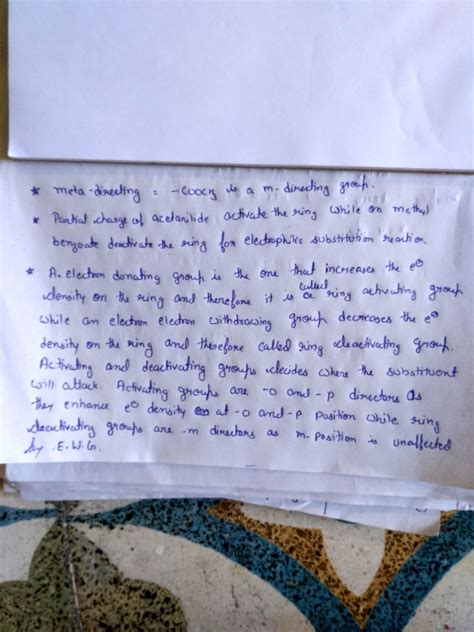 * meta-directing = -COOCH3 is a m-directing group.
* Partial charge of acetanilide activate the ring while on methyl
benzoate deactivate the ring for electrophilic substitution reaction.
* A. electron donating group is the one that increases the e⊖
density on the ring and therefore it is called a ring activating group
while an electron electron withdrawing group decreases the e⊖
density on the ring and therefore called ring deactivating group.
Activating and deactivating groups decides where the substituent
will attack. Activating groups are -o and -p directors as
they enhance e⊖ density at -o and -p position while ring
deactivating groups are -m directors as m-position is unaffected
by .E.W.G.